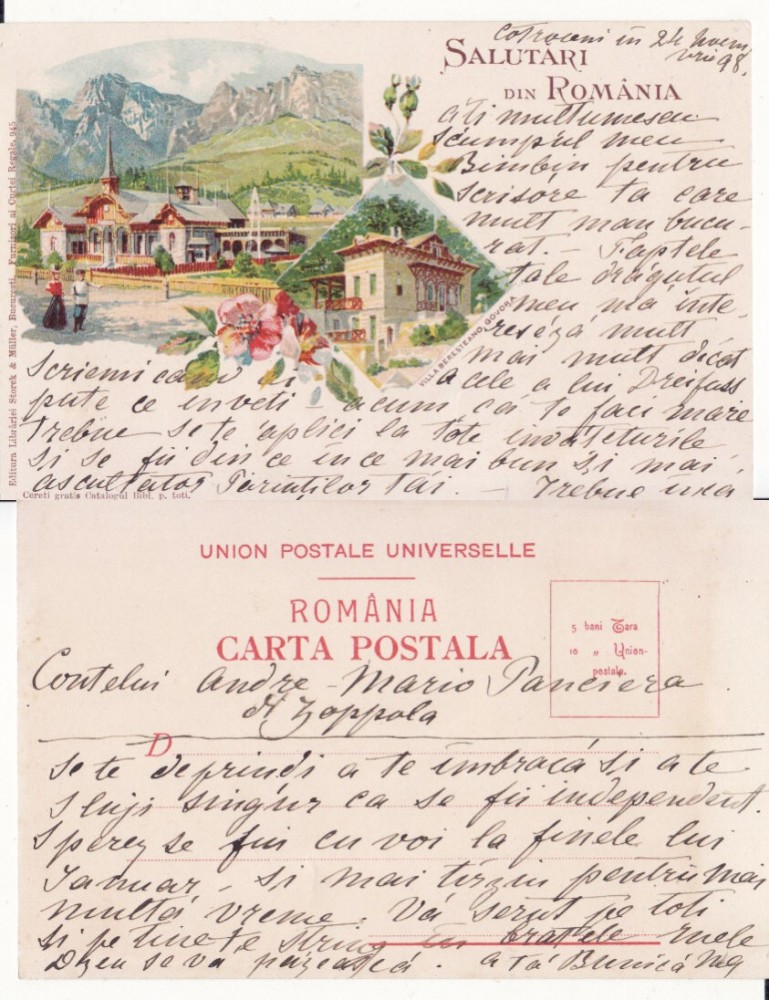 Cotroceni în 24 Noem
vrie 98.
SALUTĂRI
DIN ROMÂNIA
ați multumescu
scumpul meu
Bimbin pentru
scrisore ta care
mult mau bucu-
rat. - Faptele
tale drăgutul
meu, mă inte-
reséza mult,
mai mult dicat
acele a lui Dreifuss
VILLA BERESTEANO, GOVORA
Scriemi cam
pute ce inveti - acum, că te faci mare
Trebue se te aplici la tote invățeturile
și se fii din ce in ce mai bun și mai
ascultător Parinților tai. - Trebue
Editura Librăriei Storck & Müller, București, Furnisori ai Curței Regale, 945
Cereti gratis Catalogul Bibl. p. toti.
UNION POSTALE UNIVERSELLE
ROMÂNIA
CARTA POSTALA
5 bani Tara
10 „ Union-
postale.
Contelui Andre-Mario Panciera
di Zoppola
D
se te deprindi a te îmbracá și a te
sluji singur ca se fii independent.
Sperez se fiu cu voi la finele lui
Ianuar, - și mai tirziu pentru mai
multă vreme. Vă serut pe toti
si pe tine te string in bratele mele
Dzeu se vă păzească. a tá Bunică